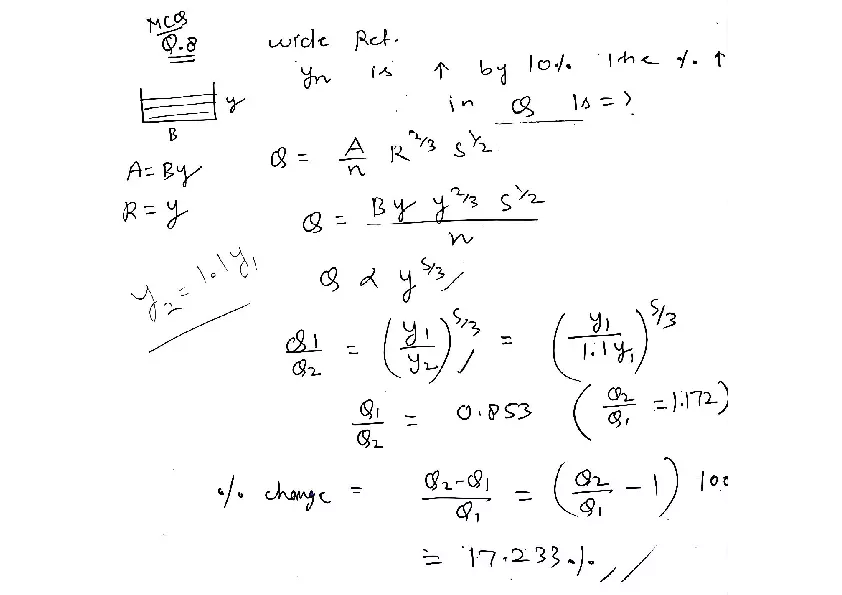 MCQ
Q.8
wide Rct.
yn is ↑ by 10%. The % ↑
in Q is = ?
y
B
A = By
R = y
Q = A/n R^2/3 S^1/2
Q = By y^2/3 S^1/2 / n
y2 = 1.1y1
Q α y^5/3
Q1/Q2 = (y1/y2)^5/3 = (y1/1.1y1)^5/3
Q1/Q2 = 0.853 (Q2/Q1 = 1.172)
% change = Q2-Q1/Q1 = (Q2/Q1 - 1) 100
= 17.233 %